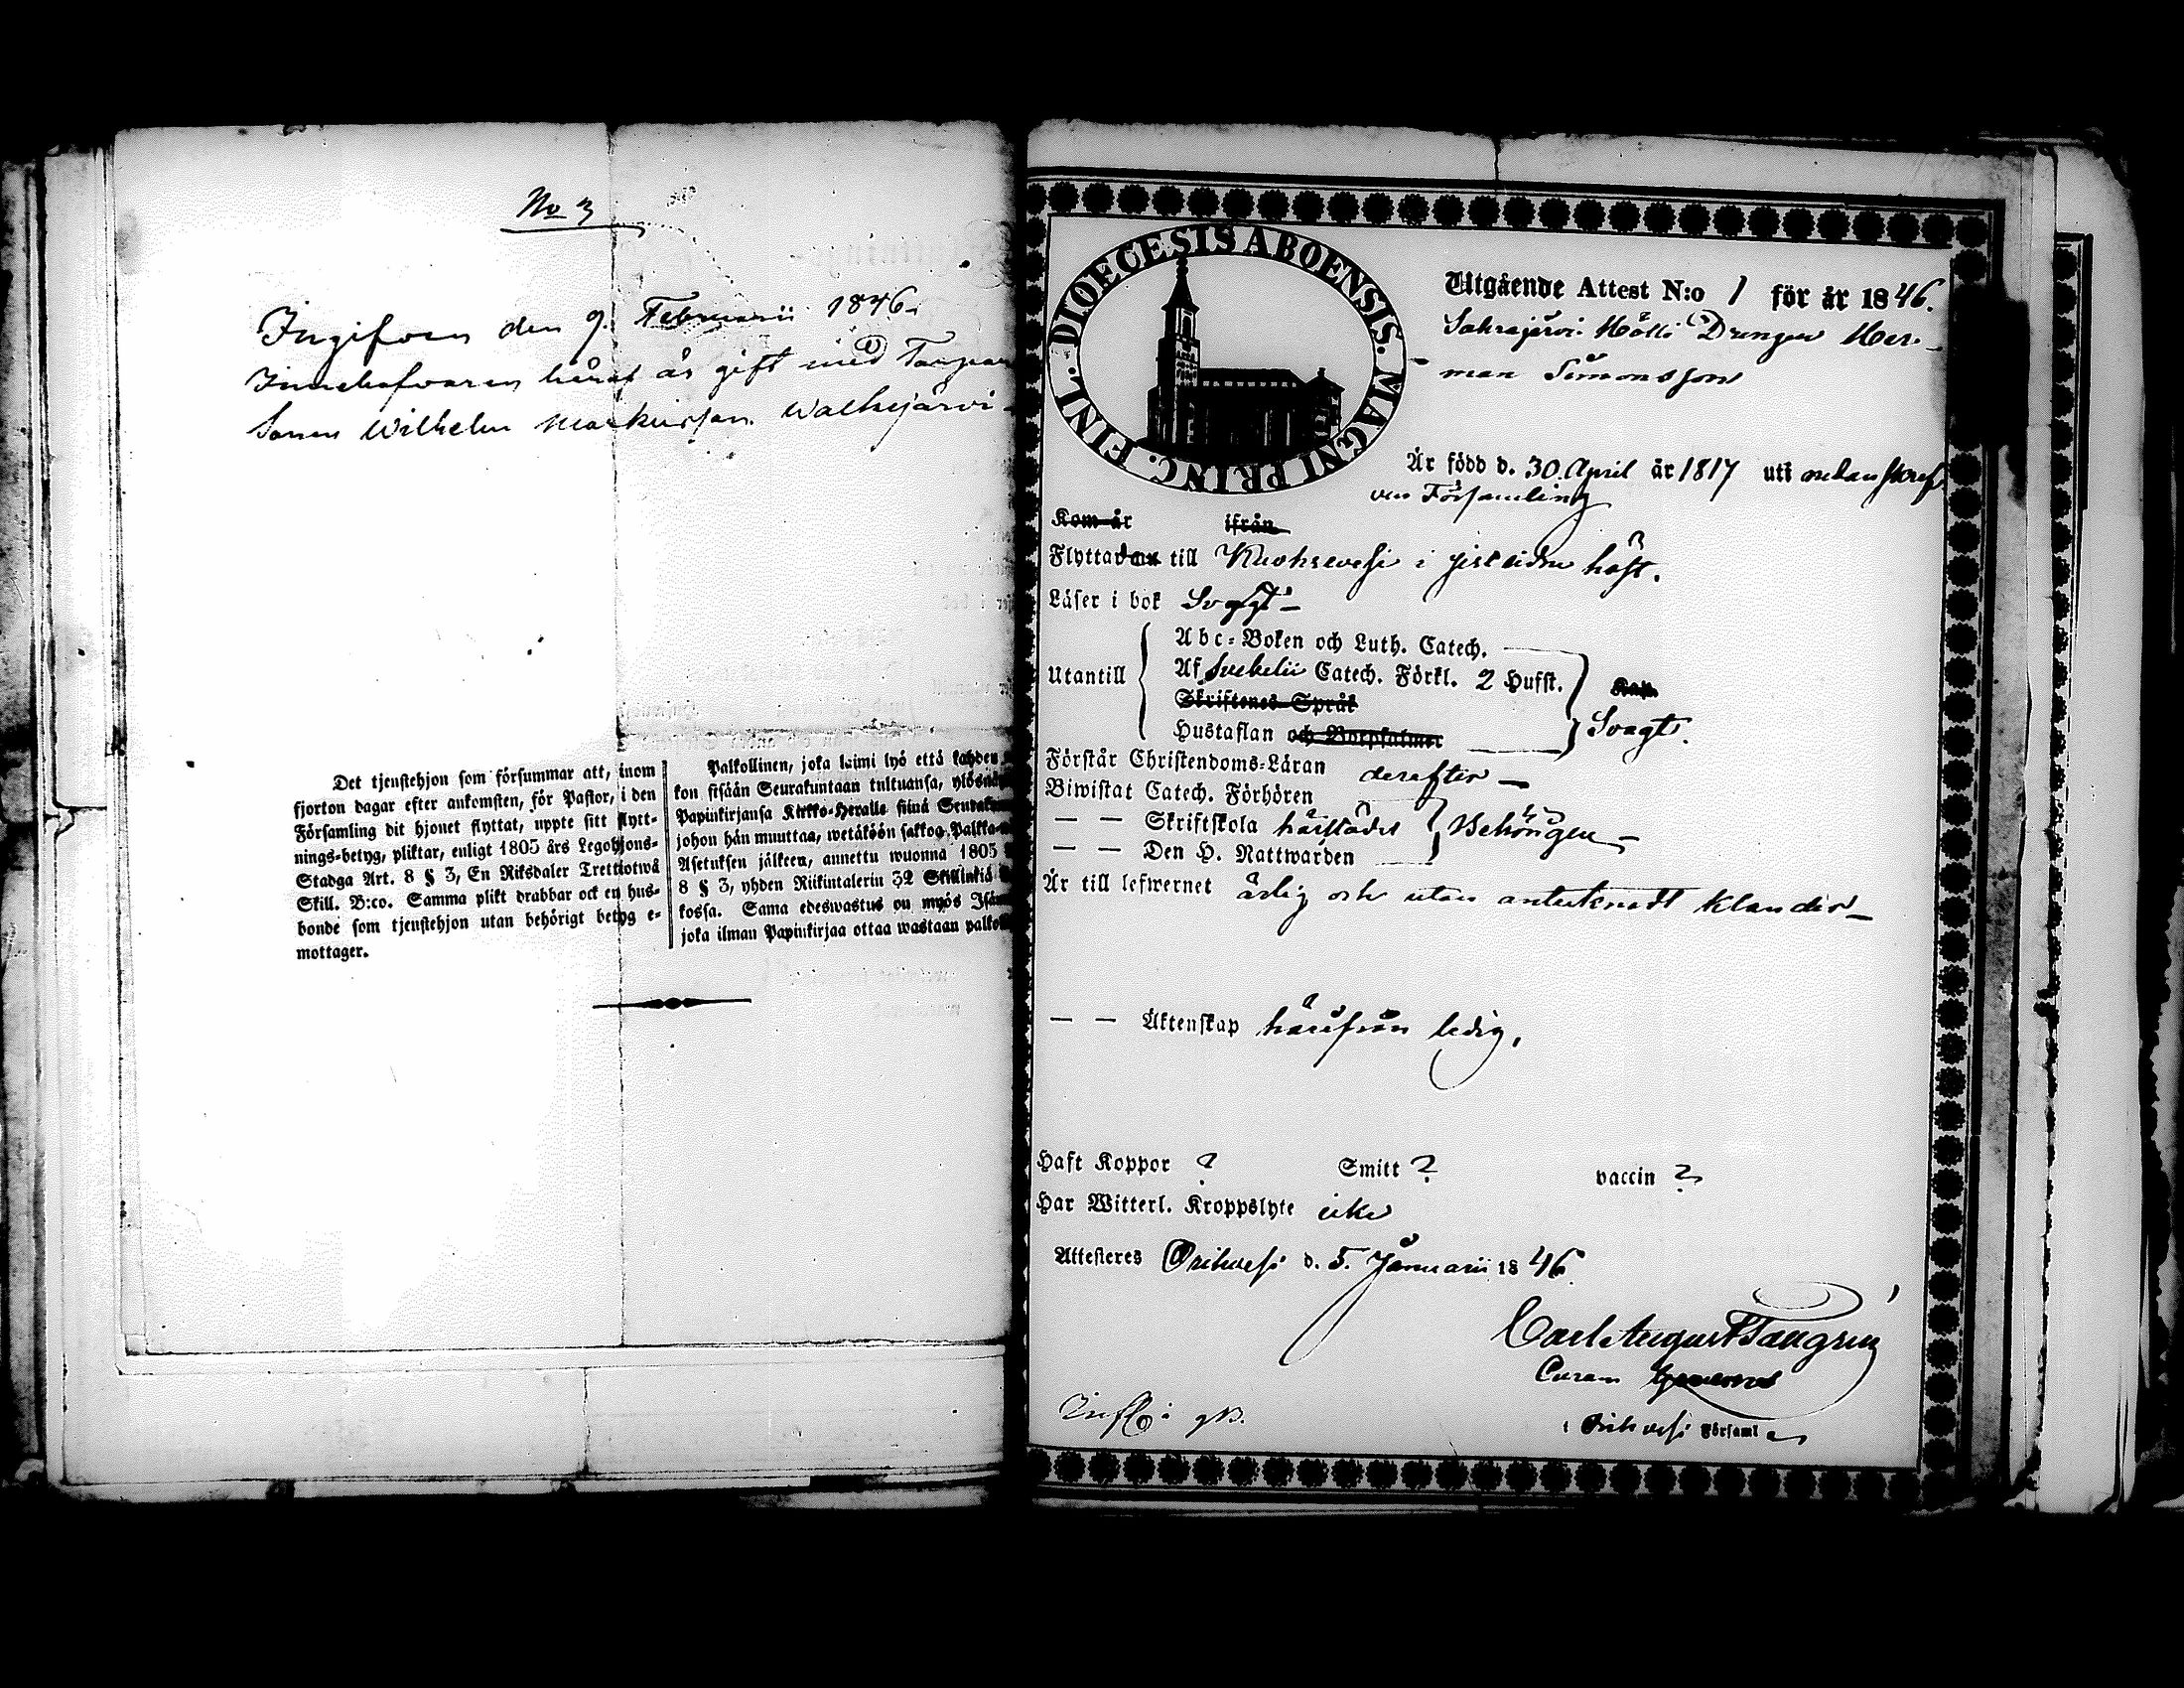 No 3
Ingifven den 9. Februarii 1846.
Innehafvaren häraf är gift med Torpare
Sonen Wilhelm Markusson Walkejärvi
Det tjenstehjon som försummar att, inom
fjorton dagar efter ankomsten, för Pastor, i den
Församling dit hjonet flyttat, uppte sitt flytt-
nings-betyg, pliktar, enligt 1805 års Legohjons-
Stadga Art. 8 § 3, En Riksdaler Trettiotwå
Skill. B:co. Samma plikt drabbar ock en hus-
bonde som tjenstehjon utan behörigt betyg e-
mottager.
Palkollinen, joka laimi lyö että kahden
kon sisään Seurakuntaan tultuansa, ylösnä
Papinkirjansa Kirkko-Herralle siinä Seuraku
johon hän muuttaa, wetäköön sakkoa, Palkka-
Asetuksen jälkeen, annettu wuonna 1805
8 § 3, yhden Riikintalerin 32 Skillinkiä
kossa. Sama edeswastus on myös Isän
joka ilman Papinkirjaa ottaa wastaan palkol
DIOECESIS ABOENSIS. MAGNI PRINC. FINL.
Utgående Attest N:o 1 för år 1846.
Sahrajärvi Mölli Drängen Her-
man Simonsson
Är född d. 30. April år 1817 uti nedanskref
ven Församling
Kom år ifrån
Flyttadax till Kuohrevesi i sistlidne höst.
Läser i bok Svagt
Abc-Boken och Luth. Catech.
Utantill Af Svebelii Catech. Förkl. 2 Hufst.
Skriftenes Språk
Hustaflan och Botpsalmer Svagt.
Förstår Christendoms-Läran derefter
Biwistat Catech. Förhören
— — Skriftskola härstädes Behörigen
— — Den H. Nattwarden
Är till lefwernet ärlig och utan anteknadt klander
— — Äktenskap härifrån ledig.
Haft Koppor ? Smitt ? vaccin ?
Har Witterl. Kroppslyte icke
Attesteres Orihvesi d. 5. Januarii 1846.
Carl August Tängrén
Curam Gerens
i Orihvesi Församl